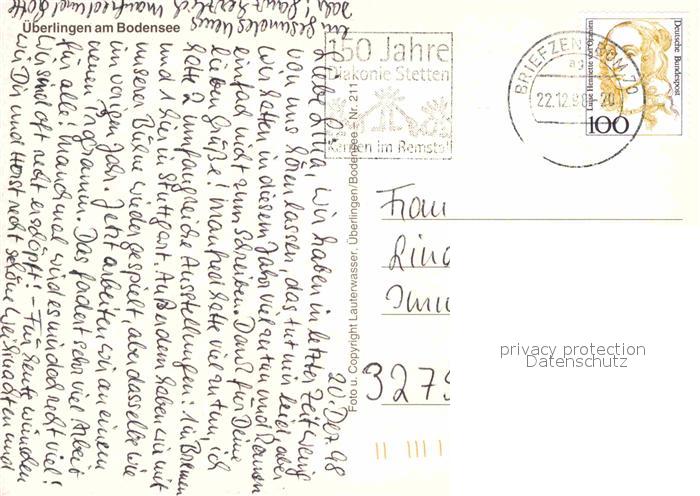 Überlingen am Bodensee
20. Dez 98
Liebe Lina, wir haben in letzter Zeit wenig
von uns hören lassen, das tut mir leid, aber
wir hatten in diesem Jahr viel zu tun und kamen
einfach nicht zum schreiben. Dank für Deine
lieben Grüße! Manfred hatte viel zu tun, ich
hatte 2 umfangreiche Ausstellungen: in Bremen
und hier in Stuttgart. Außerdem haben wir mit
unserer Bühne wieder gespielt, aber dasselbe wie
im vorigen Jahr. Jetzt arbeiten wir an einem
neuen Programm. Das fordert sehr viel Arbeit
für alle! Manchmal wird es mir doch recht viel!
Wir sind oft recht erschöpft! – Für heute wünschen
wir Dir und Horst recht schöne Weihnachten und
ein gesundes neues
Jahr! Ganz herzlich Manfred und
Foto u. Copyright Lauterwasser, Überlingen/Bodensee – Nr. 211
150 Jahre
Diakonie Stetten
Kernen im Remstal
BRIEFZENTRUM 70
ag
22.12.98 - 20
Deutsche Bundespost
100
Frau
3275
privacy protection
Datenschutz